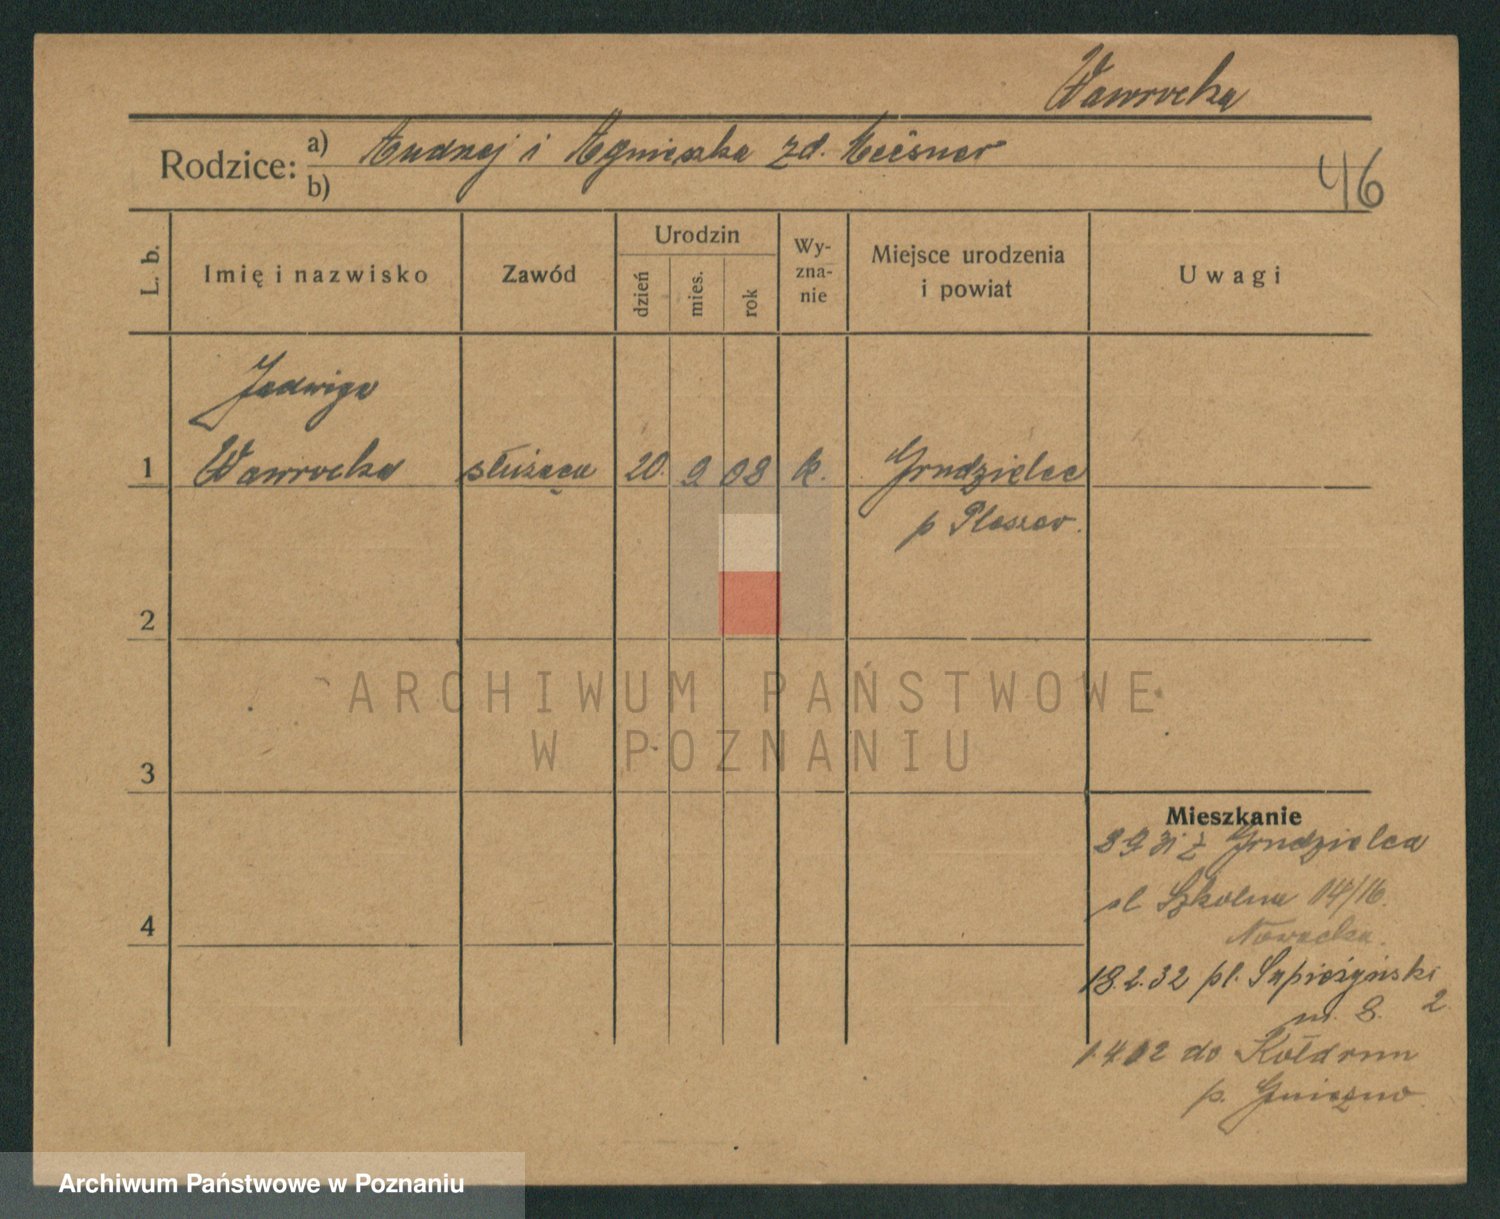 Wawrocka
Rodzice: a) Andrzej i Agnieszka zd.
b)
46
L. b.
Imię i nazwisko
Zawód
Urodzin
dzień
mies.
rok
Wy-
zna-
nie
Miejsce urodzenia
i powiat
Uwagi
Jadwiga
1 Wawrocka służąca 20. 9 08 k. Grudzielec
p Pleszew.
2
ARCHIWUM PAŃSTWOWE
W POZNANIU
3
Mieszkanie
z Grudzielca
Szkolna 14/16.
4
Nowacka.
18.2.32 pl. Sapieżyński
m. 8. 2
do
p. Gniezno
Archiwum Państwowe w Poznaniu